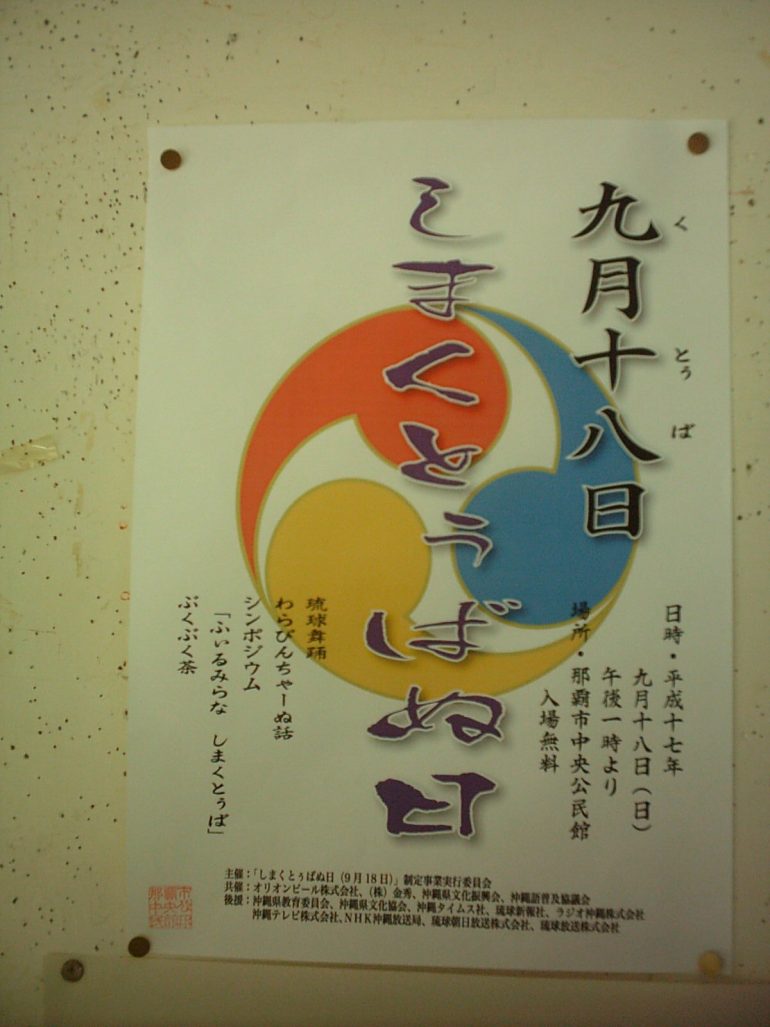 九月十八日
く とぅ ば
しまくとぅばぬ日
日時・平成十七年
九月十八日(日)
午後一時より
場所・那覇市中央公民館
入場無料
琉球舞踊
わらびんちゃーぬ話
シンポジウム
「ふぃるみらな しまくとぅば」
ぶくぶく茶
主催:「しまくとぅばぬ日(9月18日)」制定事業実行委員会
共催:オリオンビール株式会社、(株)金秀、沖縄県文化振興会、沖縄語普及協議会
後援:沖縄県教育委員会、沖縄県文化協会、沖縄タイムス社、琉球新報社、ラジオ沖縄株式会社
沖縄テレビ株式会社、NHK沖縄放送局、琉球朝日放送株式会社、琉球放送株式会社